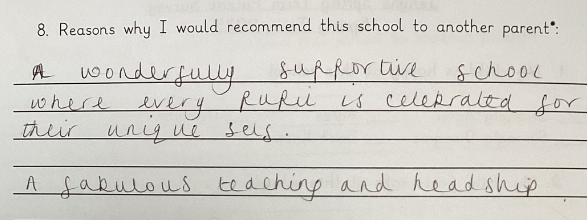 8. Reasons why I would recommend this school to another parent*:
A wonderfully supportive school
where every pupil is celebrated for
their unique self.
A fabulous teaching and headship